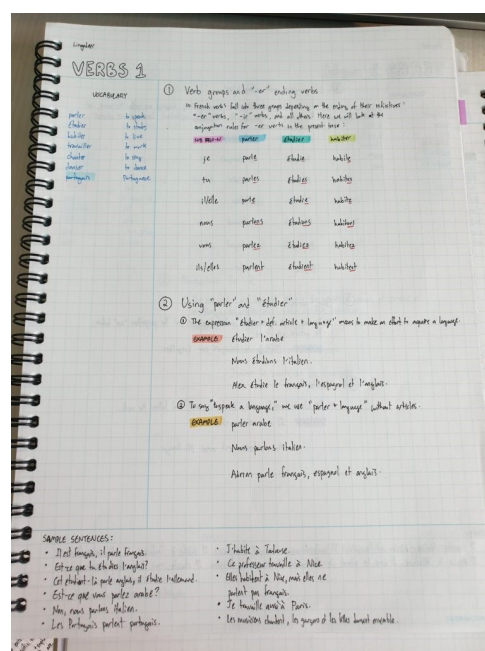 Lingodeer
VERBS 1
VOCABULARY
parler to speak
étudier to study
habiter to live
travailler to work
chanter to sing
danser to dance
portugais Portuguese
① Verb groups and "-er" ending verbs
French verbs fall into three groups depending on the ending of their infinitives:
"-er" verbs, "-ir" verbs, and all others. Here we will look at the
conjugation rules for -er verbs in the present tense.
parler étudier habiter
je parle étudie habite
tu parles étudies habites
il/elle parle étudie habite
nous parlons étudions habitons
vous parlez étudiez habitez
ils/elles parlent étudient habitent
② Using "parler" and "étudier"
① The expression "étudier + def. article + language" means to make an effort to acquire a language.
EXAMPLE étudier l'arabe
Nous étudions l'italien.
Alex étudie le français, l'espagnol et l'anglais.
② To say "to speak a language," we use "parler + language" without articles.
EXAMPLE parler arabe
Nous parlons italien.
parle français, espagnol et anglais.
SAMPLE SENTENCES:
• Il est français, il parle français.
• Est-ce que tu étudies l'anglais?
• Cet étudiant-là parle anglais, il étudie l'allemand.
• Est-ce que vous parlez arabe?
• Non, nous parlons italien.
• Les Portugais parlent portugais.
• J'habite à Toulouse.
• Ce professeur travaille à Nice.
• Elles habitent à Nice, mais elles ne
parlent pas français.
• Je travaille aussi à Paris.
• Les musiciens chantent, les garçons et les filles dansent ensemble.